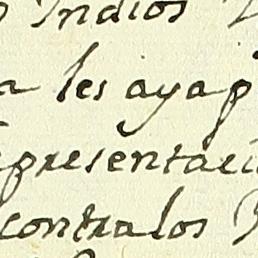 Indios
a les aya p
epresentaci
contra los